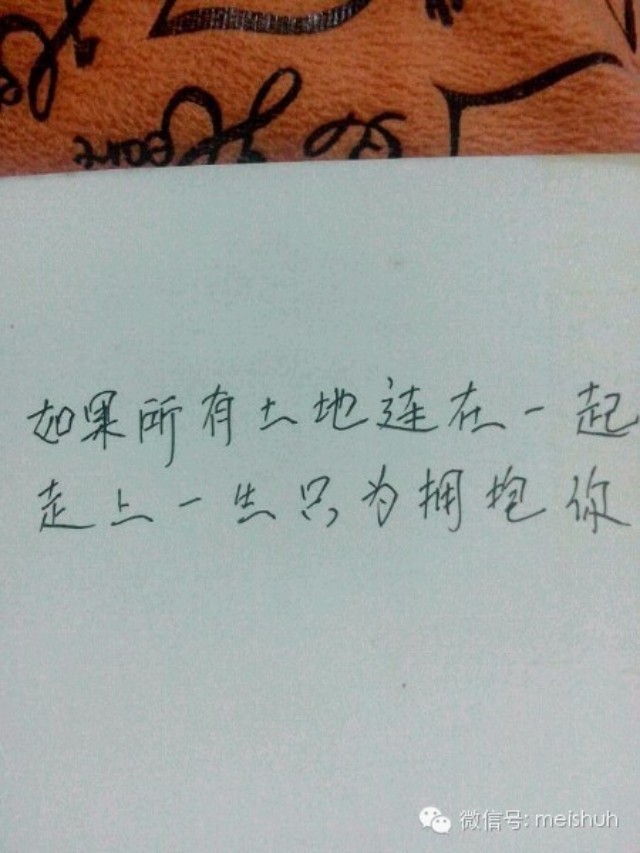 如果所有土地连在一起
走上一生只为拥抱你
微信号: meishuh